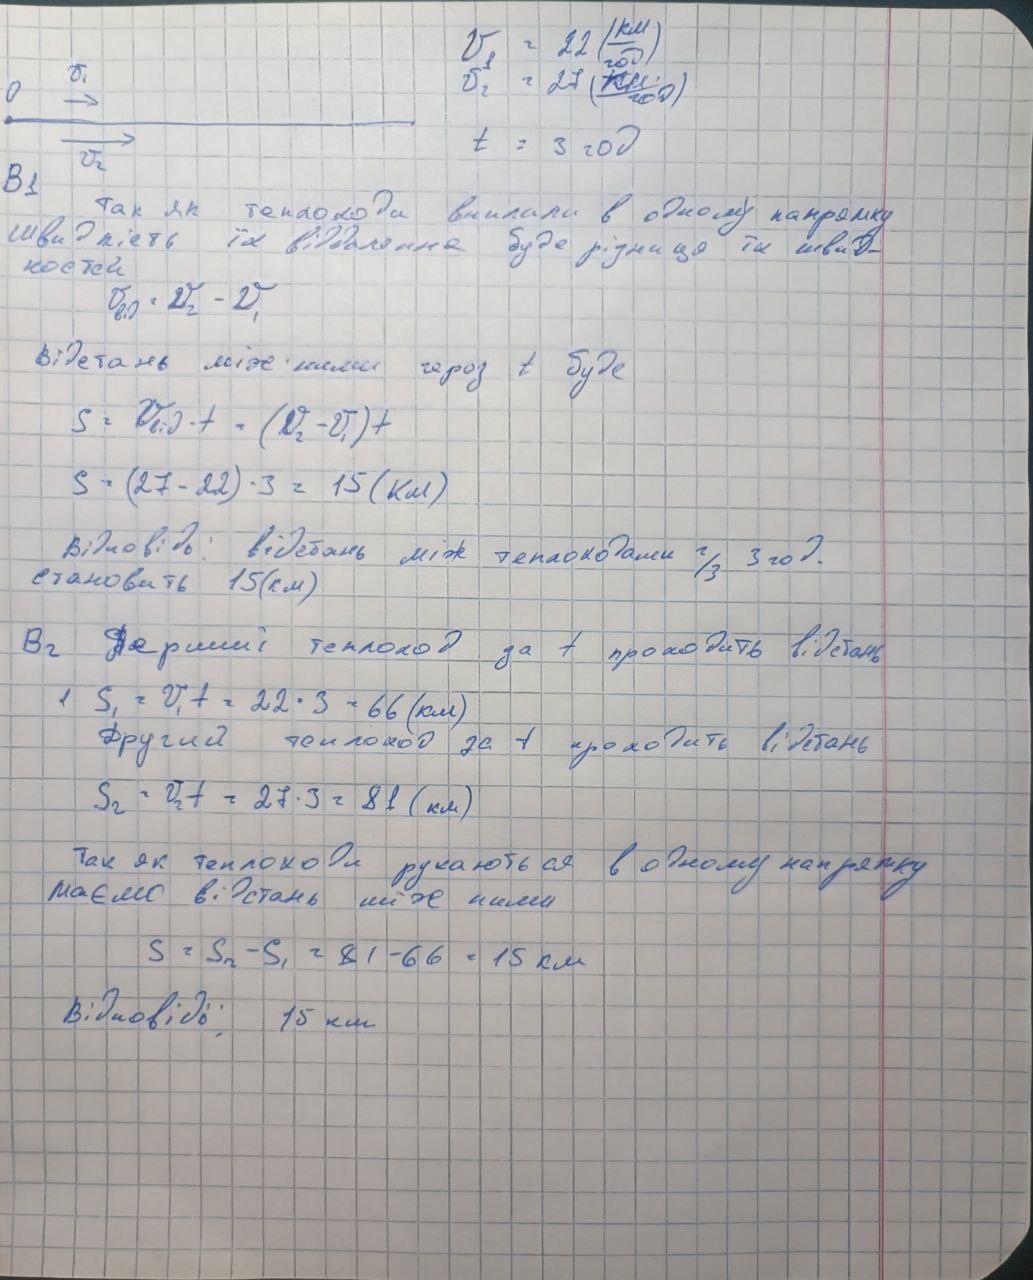 V₁ = 22 (км/год)
V₂ = 27 (км/год)
t = 3 год
0 V₁
V₂
В1
Так як теплоходи виплили в одному напрямку
швидкість їх віддалення буде різниця їх швид-
костей
Vвід = V₂ - V₁
Відстань між ними через t буде
S = Vвід · t = (V₂ - V₁) t
S = (27 - 22) · 3 = 15 (км)
Відповідь: відстань між теплоходами ч/з 3 год.
становить 15 (км)
В2 Перший теплоход за t проходить відстань
1 S₁ = V₁t = 22 · 3 = 66 (км)
Другий теплоход за t проходить відстань
S₂ = V₂t = 27 · 3 = 81 (км)
Так як теплоходи рухаються в одному напрямку
маємо відстань між ними
S = S₂ - S₁ = 81 - 66 = 15 км
Відповідь: 15 км